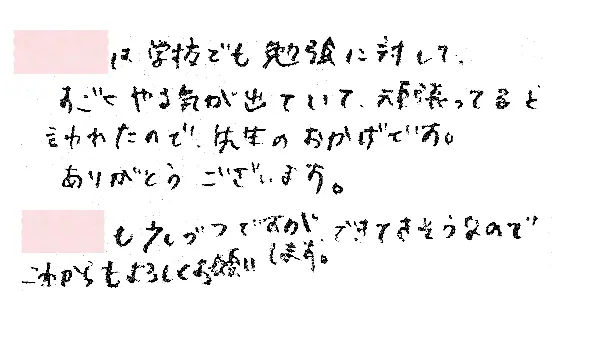 は学校でも勉強に対して、
すごくやる気が出ていて、頑張ってると
言われたので、先生のおかげです。
ありがとうございます。
も少しづつですができてきそうなので
これからもよろしくお願いします。